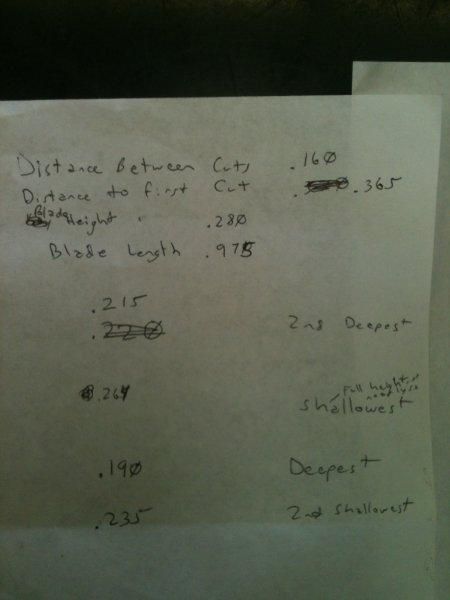 Distance Between Cuts .160
Distance to first Cut .365
Blade Height .280
Blade Length .975
.215
.220 2nd Deepest
.264 shallowest
full height
.190 Deepest
.235 2nd shallowest